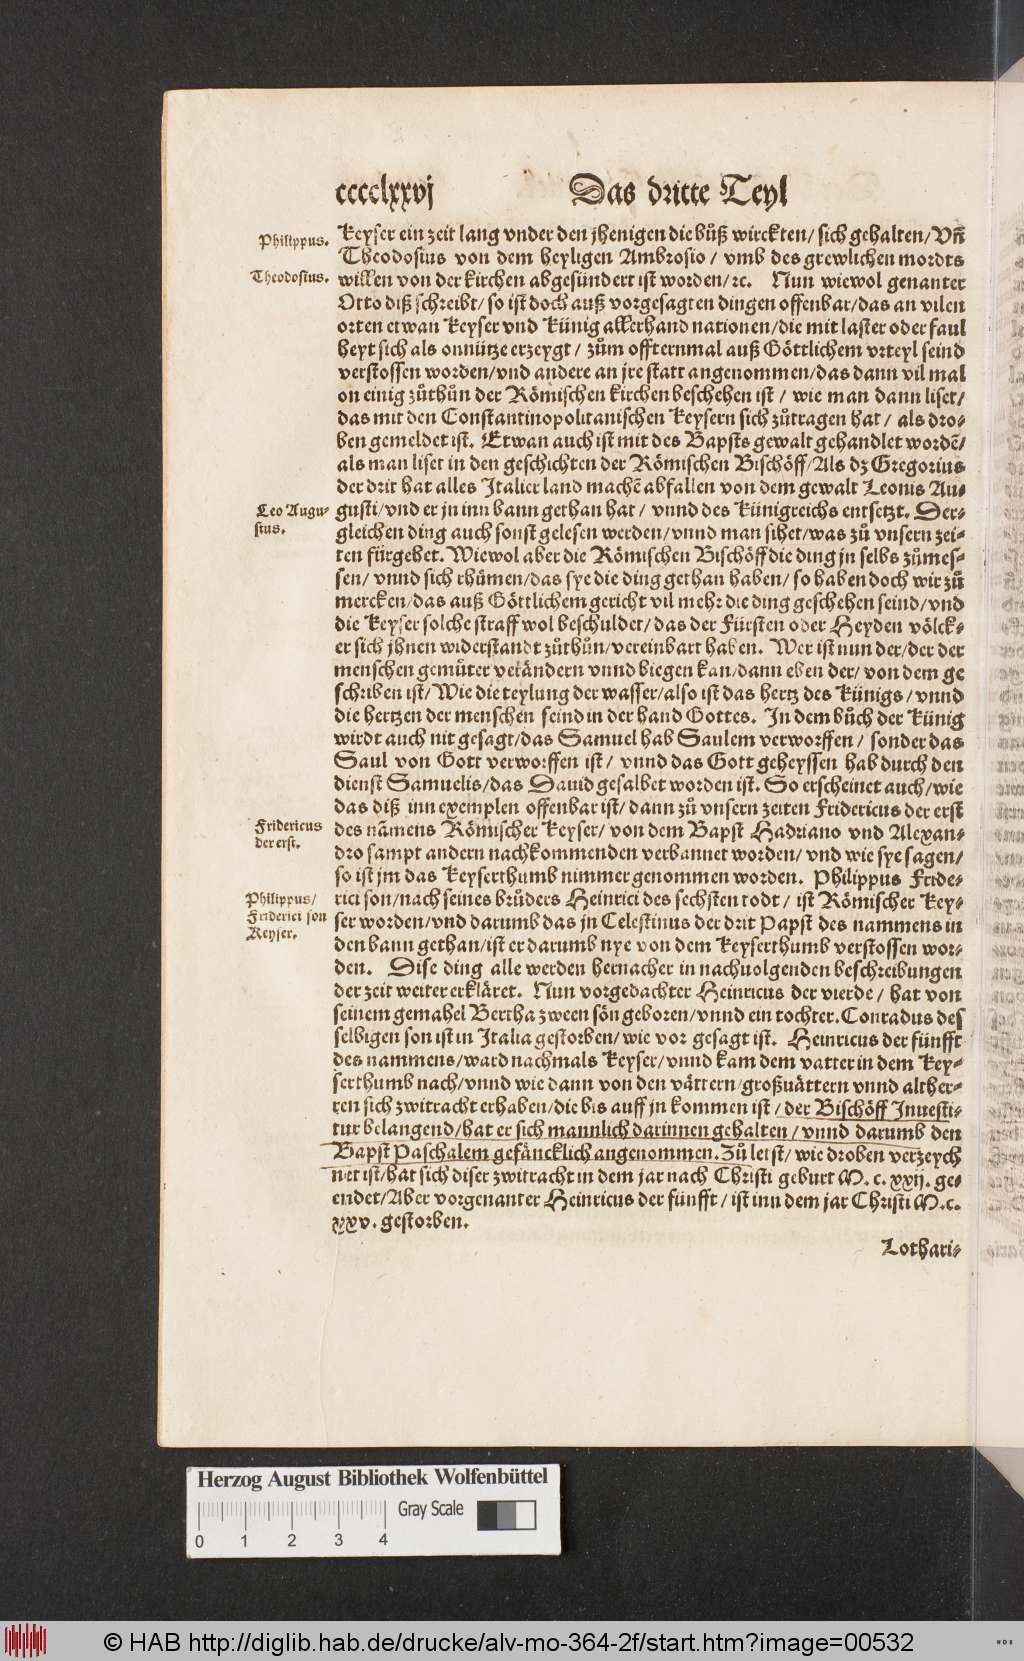 cccclxxvj Das dritte Teyl
Philippus.
Theodosius.
Keyser ein zeit lang vnder den jhenigen die bůß wirckten/ sich gehalten/ Vñ
Theodosius von dem heyligen Ambrosio/ vmb des grewlichen mordts
willen von der kirchen abgesündert ist worden/ ꝛc. Nun wiewol genanter
Otto diß schreibt/ so ist doch auß vorgesagten dingen offenbar/ das an vilen
orten etwan Keyser vnd Künig allerhand nationen/ die mit laster oder faul
heyt sich als onnütze erzeygt/ zům offternmal auß Göttlichem vrteyl seind
verstossen worden/ vnd andere an jre statt angenommen/ das dann vil mal
on einig zůthůn der Römischen kirchen beschehen ist/ wie man dann liset/
das mit den Constantinopolitanischen Keysern sich zůtragen hat/ als dro-
ben gemeldet ist. Etwan auch ist mit des Bapsts gewalt gehandlet wordē/
als man liset in den geschichten der Römischen Bischöff/ Als dz Gregorius
der drit hat alles Italier land machē abfallen von dem gewalt Leonis Au-
Leo Augu-
stus.
gusti/ vnd er jn inn bann gethan hat/ vnnd des Künigreichs entsetzt. Der-
gleichen ding auch sonst gelesen werden/ vnnd man sihet/ was zů vnsern zei-
ten fürgehet. Wiewol aber die Römischen Bischöff die ding jn selbs zůmes-
sen/ vnnd sich rhümen/ das sye die ding gethan haben/ so haben doch wir zů
mercken/ das auß Göttlichem gericht vil mehr die ding geschehen seind/ vnd
die Keyser solche straff wol beschuldet/ das der Fürsten oder Heyden völck-
er sich jhnen widerstandt zůthůn/ vereinbart haben. Wer ist nun der/ der der
menschen gemüter verändern vnnd biegen kan/ dann eben der/ von dem ge
schriben ist/ Wie die teylung der wasser/ also ist das hertz des Künigs/ vnnd
die hertzen der menschen seind in der hand Gottes. In dem bůch der Künig
wirdt auch nit gesagt/ das Samuel hab Saulem verworffen/ sonder das
Saul von Gott verworffen ist/ vnnd das Gott geheyssen hab durch den
dienst Samuelis/ das Dauid gesalbet worden ist. So erscheinet auch/ wie
das diß inn exemplen offenbar ist/ dann zů vnsern zeiten Fridericus der erst
Fridericus
der erst.
des nãmens Römischer Keyser/ von dem Bapst Hadriano vnd Alexan-
dro sampt andern nachkommenden verbannet worden/ vnd wie sye sagen/
so ist jm das Keyserthumb nimmer genommen worden. Philippus Fride-
Philippus/
Friderici son
Keyser.
rici son/ nach seines brůders Heinrici des sechsten todt/ ist Römischer Key-
ser worden/ vnd darumb das jn Celestinus der drit Papst des nammens in
den bann gethan/ ist er darumb nye von dem Keyserthumb verstossen wor-
den. Dise ding alle werden hernacher in nachuolgenden beschreibungen
der zeit weiter erkläret. Nun vorgedachter Heinricus der vierde/ hat von
seinem gemahel Bertha zween sön geboren/ vnnd ein tochter. Conradus des
selbigen son ist in Italia gestorben/ wie vor gesagt ist. Heinricus der fünfft
des nammens/ ward nachmals Keyser/ vnnd kam dem vatter in dem Key-
serthumb nach/ vnnd wie dann von den vättern/ großuättern vnnd alther-
ren sich zwitracht erhaben/ die bis auff jn kommen ist/ der Bischöff Inuesti-
tur belangend/ hat er sich mannlich darinnen gehalten/ vnnd darumb den
Bapst Paschalem gefäncklich angenommen. Zů letst/ wie droben verzeych
net ist/ hat sich diser zwitracht in dem jar nach Christi geburt M. c. xxij. ge-
endet/ Aber vorgenanter Heinricus der fünfft/ ist inn dem jar Christi M. c.
xxv. gestorben.
Lothari-
Herzog August Bibliothek Wolfenbüttel
Gray Scale
0 1 2 3 4
© HAB http://diglib.hab.de/drucke/alv-mo-364-2f/start.htm?image=00532